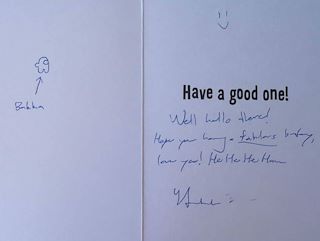 Bubba
Have a good one!
Well hello there!
Hope your having a fabulous birthday,
love you! He He He